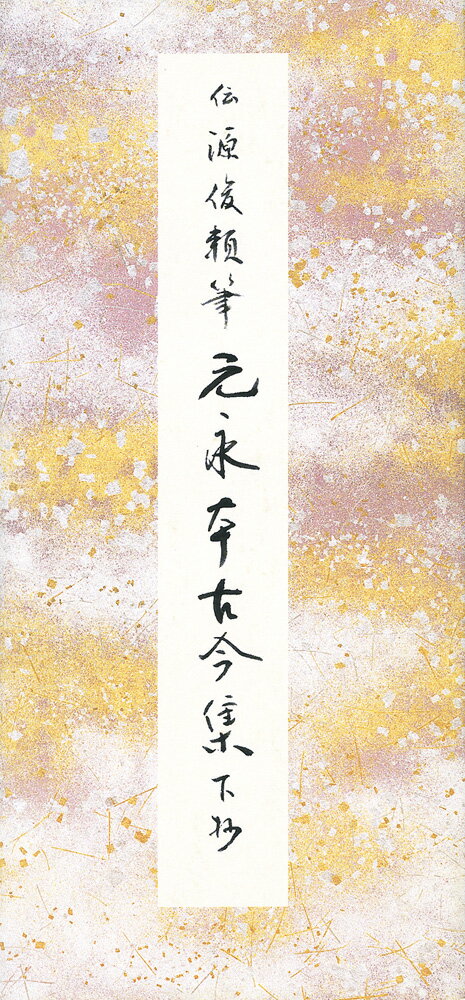 伝源俊頼筆元永本古今集下抄